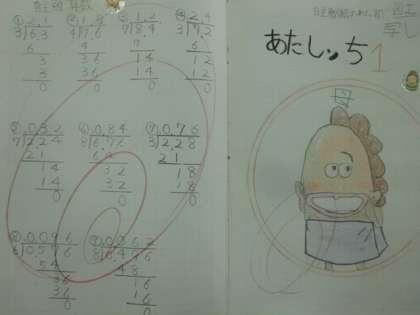 算数
① 2.1 ② 1.9 ③ 1.2 ④ 2.4
3)6.3 4)7.6 7)8.4 3)7.2
6 4 7 6
3 36 14 12
3 36 14 12
0 0 0 0
⑤ 0.32 ⑥ 0.84 ⑦ 0.76
7)2.24 3)2.28
21 64 21
14 32 18
14 32 18
0 0 0
⑧ 0.096
6)0.576
54 48
36 16
36 16
0 0
あたしンち 1
母